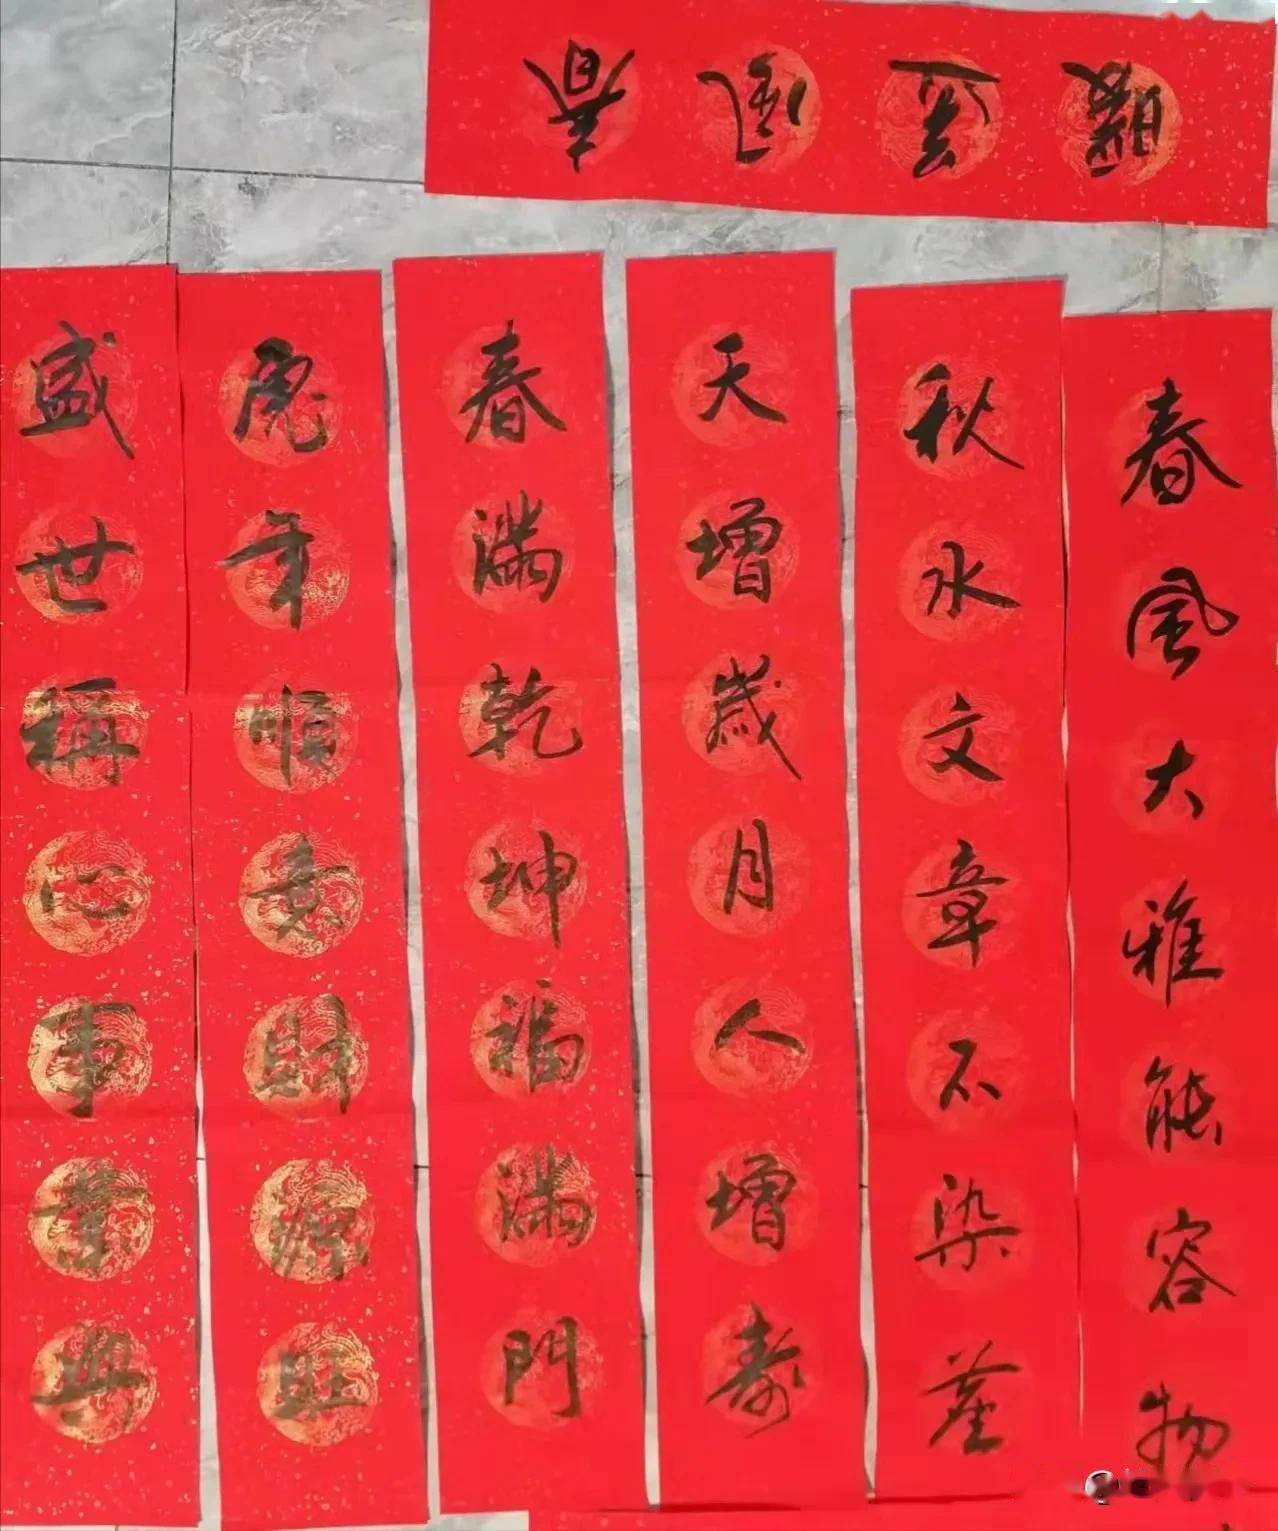 春風送暖
春風大雅能容物
秋水文章不染塵
天增歲月人增壽
春滿乾坤福滿門
虎年順意財源旺
盛世稱心事業興